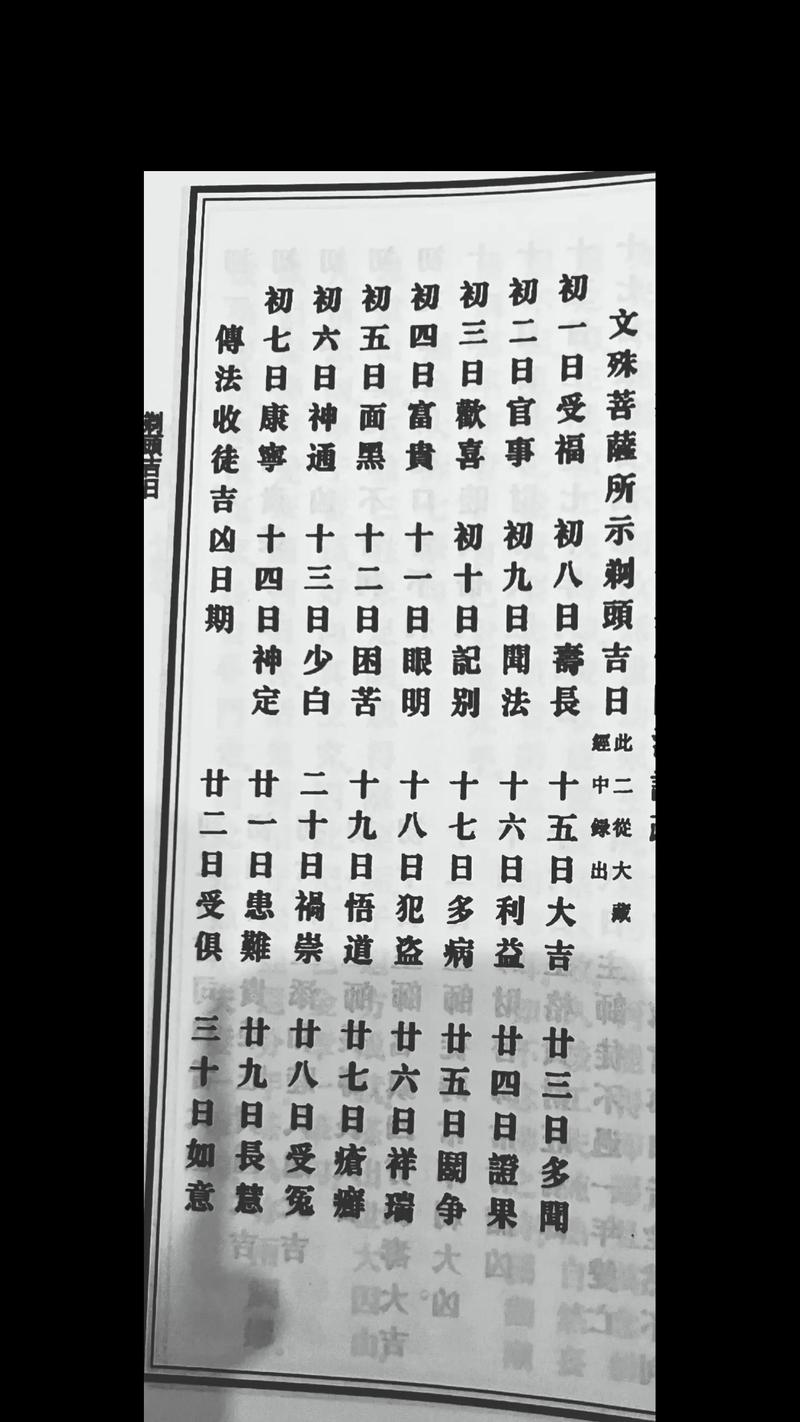 文殊菩薩所示剃頭吉日
此二從大藏
經中録出
初一日受福 初八日壽長 十五日大吉 廿三日多聞
初二日官事 初九日聞法 十六日利益 廿四日證果
初三日歡喜 初十日記別 十七日多病 廿五日鬪争
初四日富貴 十一日眼明 十八日犯盗 廿六日祥瑞
初五日面黑 十二日困苦 十九日悟道 廿七日瘡癬
初六日神通 十三日少白 二十日禍崇 廿八日受冤
初七日康寧 十四日神定 廿一日患難 廿九日長慧
傳法收徒吉凶日期 廿二日受俱 三十日如意
剃頭吉日